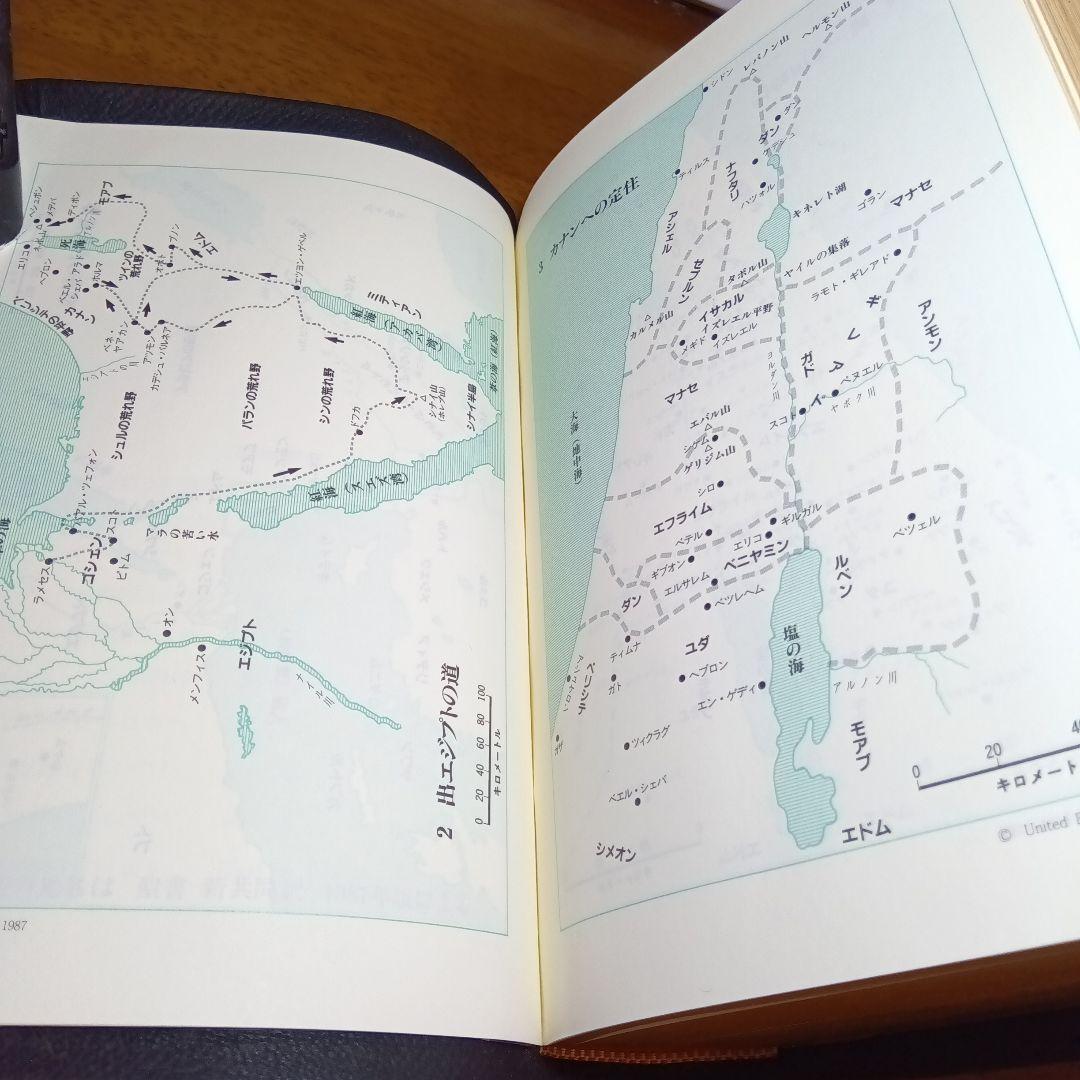 2 出エジプトの道
0 20 40 60 80 100
キロメートル
ヘシュボン
メデバ
ディボン
モアブ
エリコ
死海
ヘブロン
ベエル・シェバ
アラド
ホルマ
ツィンの荒れ野
オボト
プノン
エドム
エツヨン・ゲベル
ミディアン
カナン
ベネ・ヤアカン
アツモン
カデシュ・バルネア
シュルの荒れ野
パランの荒れ野
シンの荒れ野
紅海(アカバ湾)
シナイ山
(ホレブ山)
シナイ半島
ドフカ
紅海(スエズ湾)
バアル・ツェフォン
マラの苦い水
スコト
ゴシェン
ピトム
ラメセス
オン
メンフィス
エジプト
ナイル川
1987
3 カナンへの定住
シドン
レバノン山
ヘルモン山
ティルス
ダン
ダン
ケデシュ
ナフタリ
ハツォル
アシェル
キネレト湖
ゴラン
マナセ
ゼブルン
タボル山
ヤイルの集落
ラモト・ギレアド
カルメル山
イサカル
イズレエル平野
メギド
イズレエル
ギレアド
アンモン
ヨルダン川
ガド
マナセ
ペヌエル
ヤボク川
スコト
エバル山
シケム
ゲリジム山
大海(地中海)
シロ
エフライム
ベテル
ギルガル
エリコ
ベニヤミン
ギブオン
エルサレム
ベツェル
ルベン
ダン
ベツレヘム
ティムナ
ユダ
塩の海
ガト
ヘブロン
エン・ゲディ
アルノン川
ペリシテ
ガザ
ツィクラグ
モアブ
ベエル・シェバ
シメオン
エドム
0 20
キロメート
© United